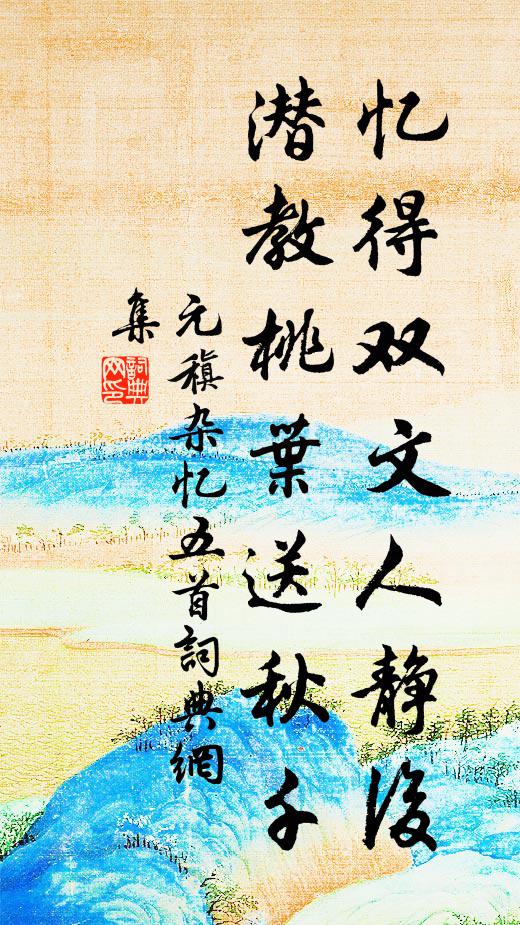 忆得双文人静後
潜教桃葉送秋千
元稹杂忆五首詞典網
集
詞典
网印